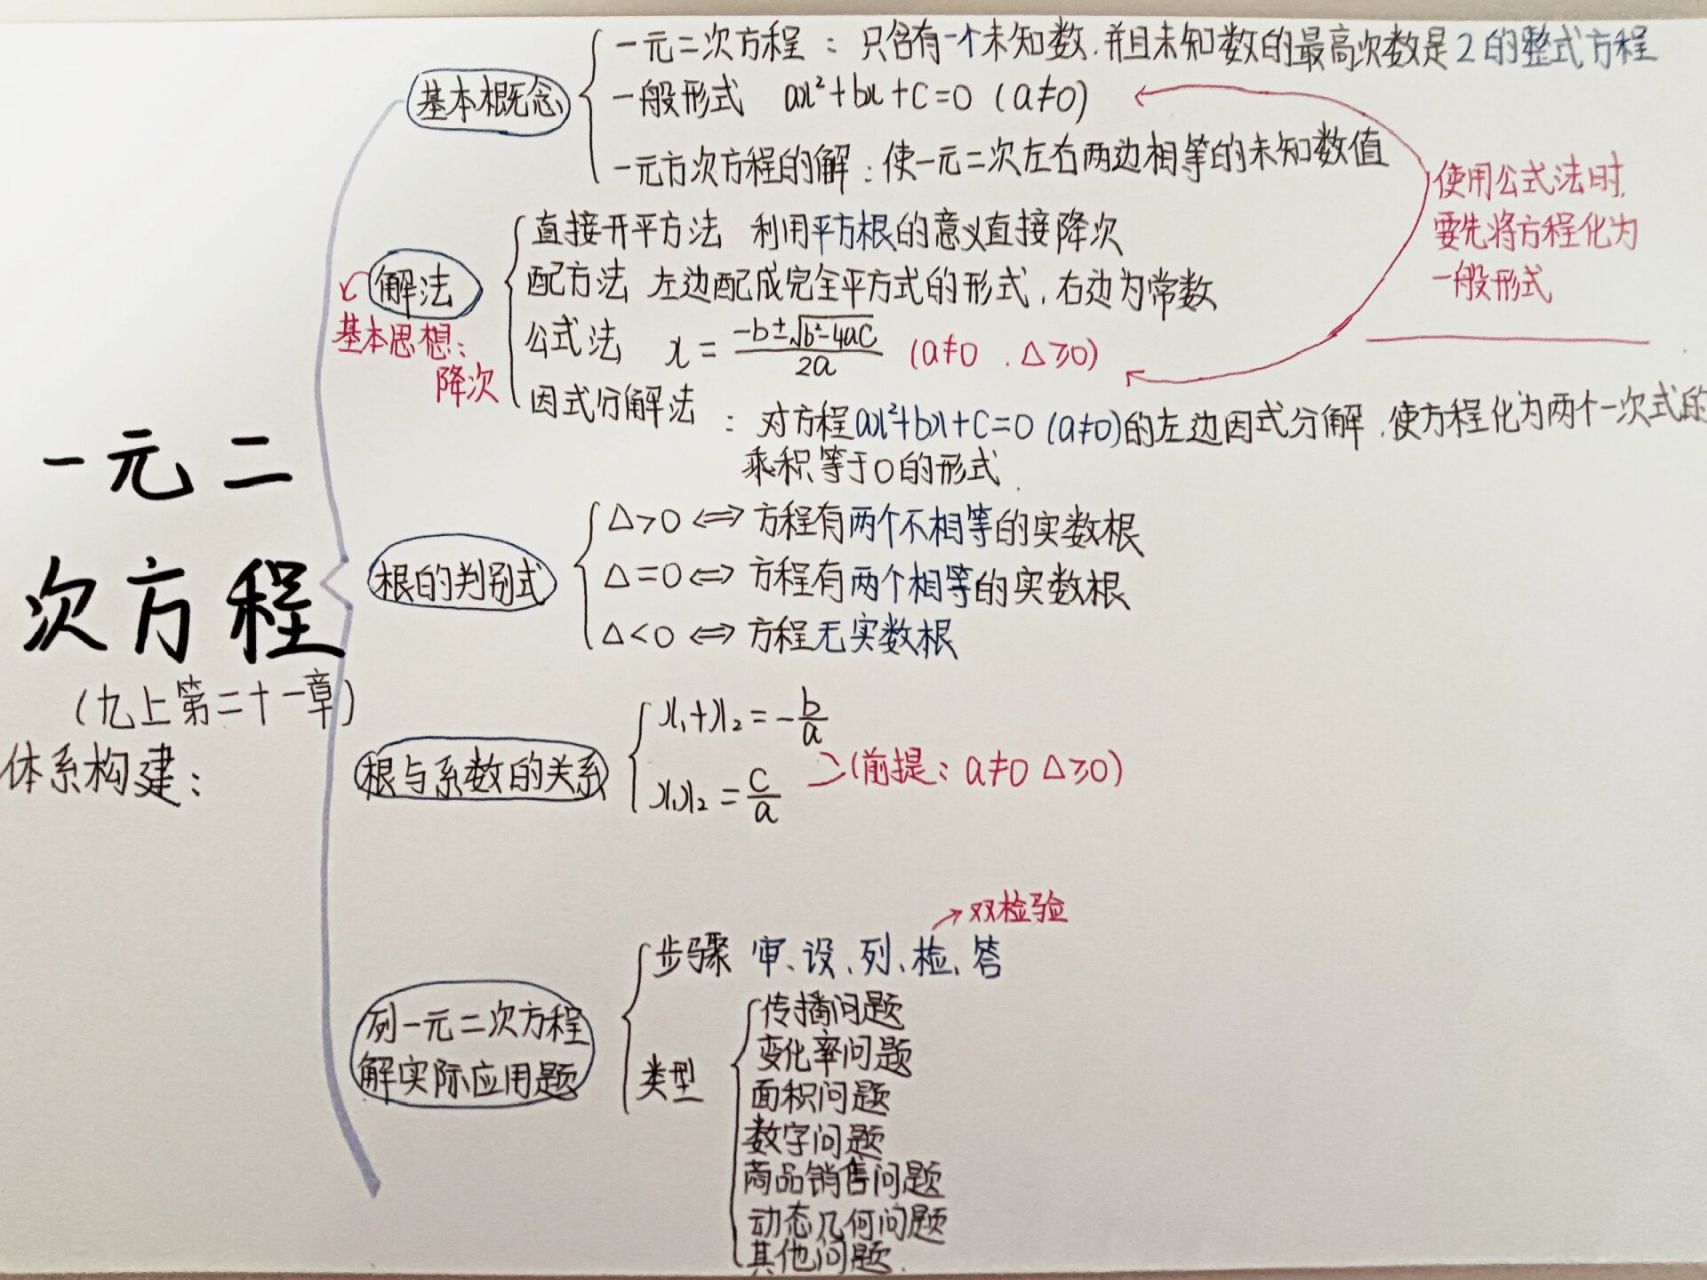 一元二
次方程
(九上第二十一章)
体系构建：
基本概念
一元二次方程：只含有一个未知数，并且未知数的最高次数是2的整式方程
一般形式 ax²+bx+c=0 (a≠0)
一元方次方程的解：使一元二次左右两边相等的未知数值
使用公式法时，
要先将方程化为
一般形式
解法
基本思想：
降次
直接开平方法 利用平方根的意义直接降次
配方法 左边配成完全平方式的形式，右边为常数
公式法 x=(-b±√(b²-4ac))/(2a) (a≠0，△≥0)
因式分解法：对方程ax²+bx+c=0 (a≠0)的左边因式分解，使方程化为两个一次式的
乘积等于0的形式
根的判别式
△>0⇔方程有两个不相等的实数根
△=0⇔方程有两个相等的实数根
△<0⇔方程无实数根
根与系数的关系
x₁+x₂=-b/a
x₁x₂=c/a
(前提：a≠0 △≥0)
列一元二次方程
解实际应用题
双检验
步骤 审、设、列、检、答
类型
传播问题
变化率问题
面积问题
数字问题
商品销售问题
动态几何问题
其他问题.